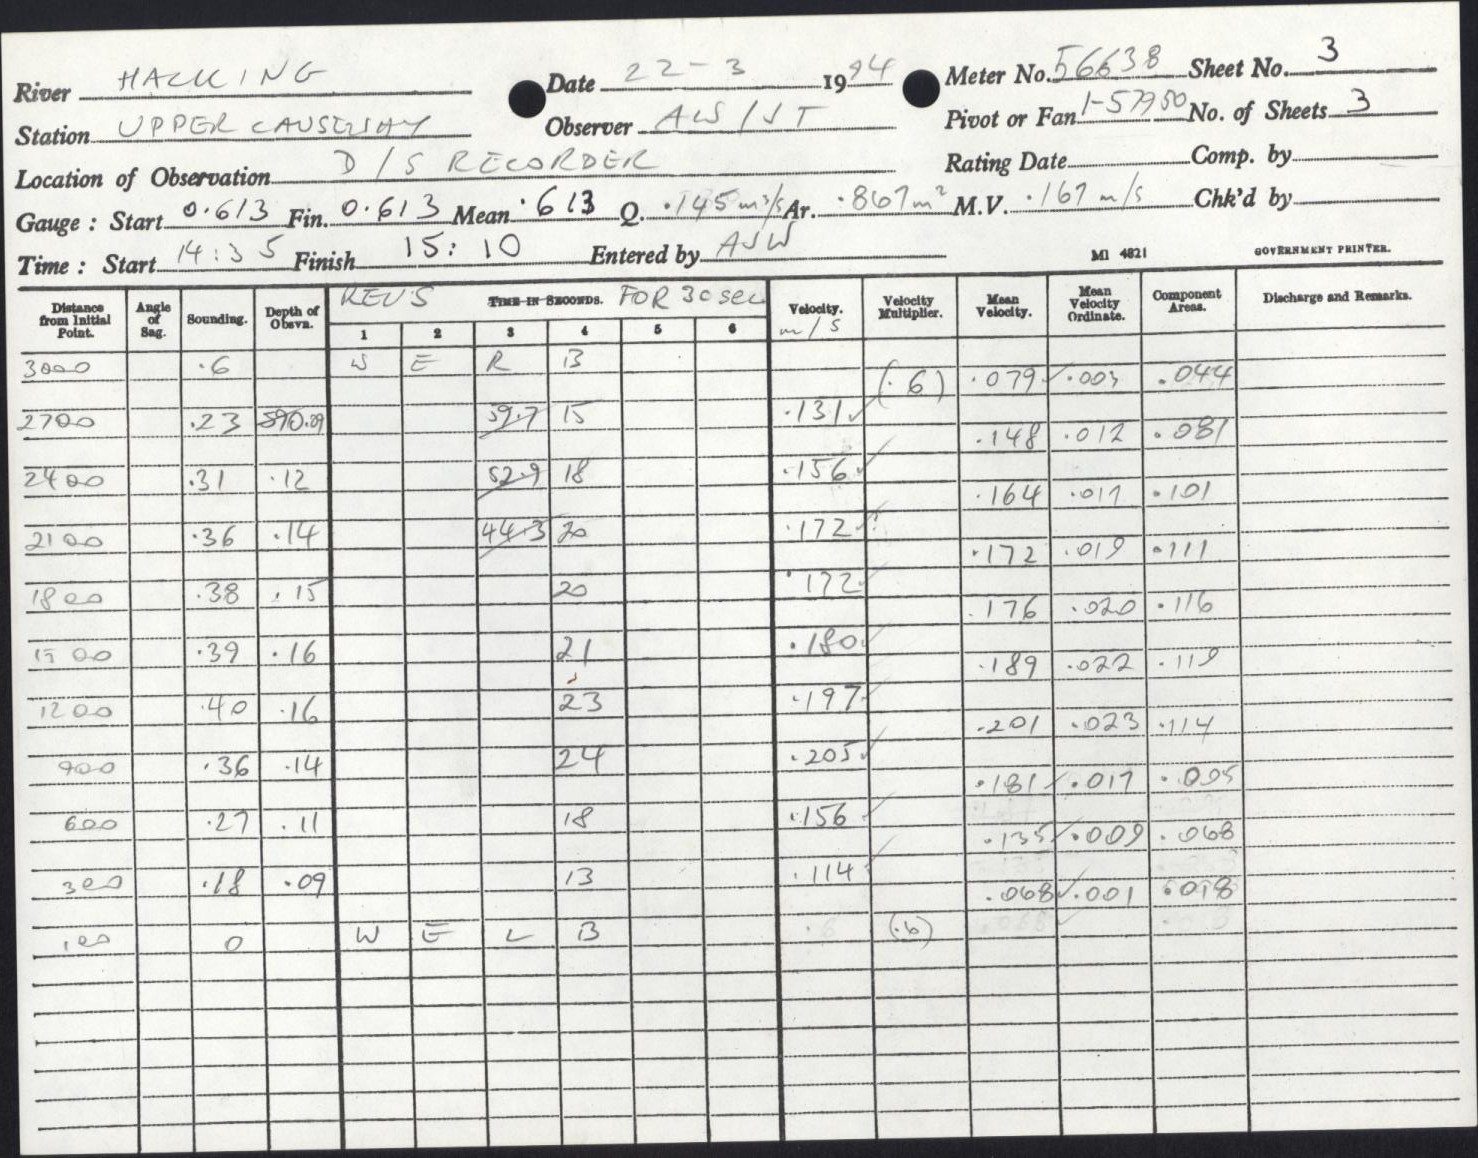 River HACKING Date 22-3 1994 Meter No. 56638 Sheet No. 3
Station UPPER CAUSEWAY Observer AW/JT Pivot or Fan 1-57950 No. of Sheets 3
Location of Observation D/S RECORDER Rating Date Comp. by
Gauge : Start 0.613 Fin. 0.613 Mean .613 Q. .145 m³/s Ar. .867 m² M.V. .167 m/s Chk'd by
Time : Start 14:35 Finish 15:10 Entered by AJW MI 4821 GOVERNMENT PRINTER.
Distance from Initial Point. Angle of Sag. Sounding. Depth of Obsvn. REV'S TIME IN SECONDS. FOR 30 sec Velocity. m/s Velocity Multiplier. Mean Velocity. Mean Velocity Ordinate. Component Areas. Discharge and Remarks.
1 2 3 4 5 6
3000 .6 W E R B
(.6) .079 .003 .044
2700 .23 .09 59.7 15 .131
.148 .012 .081
2400 .31 .12 52.9 18 .156
.164 .017 .101
2100 .36 .14 44.3 20 .172
.172 .019 .111
1800 .38 .15 20 .172
.176 .020 .116
1500 .39 .16 21 .180
.189 .022 .119
1200 .40 .16 23 .197
.201 .023 .114
900 .36 .14 24 .205
.181 .017 .095
600 .27 .11 18 .156
.135 .009 .068
300 .18 .09 13 .114
.068 .001 .018
100 0 W E L B (.6)